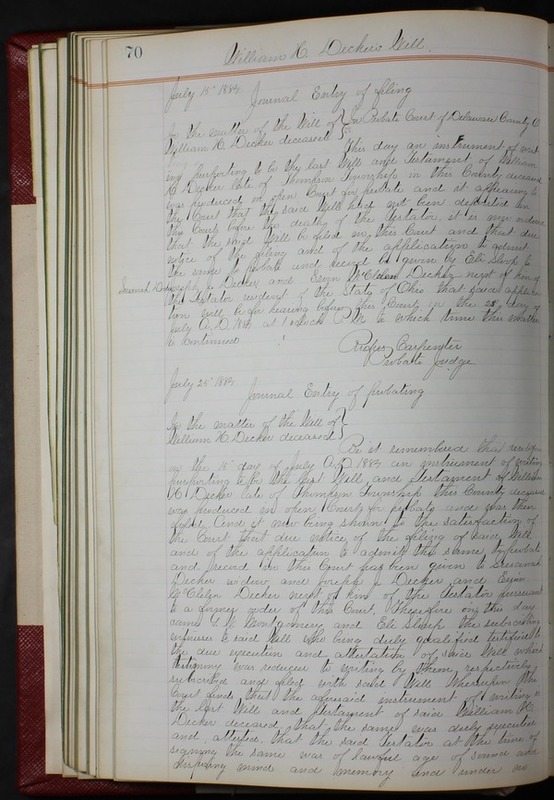 70
William H. Decker's Will.
July 15" 1884
Journal Entry of filing
In the matter of the Will of } In Probate Court of Delaware County O
William H. Decker deceased
This day an instrument of writ
ing purporting to be the last Will and Testament of William
H. Decker late of Thompson Township in this County deceased
was produced in open Court for probate and it appearing to
the Court that the said Will had not been deposited in
this Court before the death of the Testator it is now ordered
that the said Will be filed in this Court and that due
notice of the filing and of the application to admit
the same to probate and record be given by Eli Slack to
Susannah Decker Joseph L. Decker and Decker next of kin of
the Testator resident of the State of Ohio that said applica
tion will be for hearing before this Court on the 25" day of
July A.D. 1884 at 1 oclock P.M. to which time this matter
is continued
Rufus Carpenter
Probate Judge
July 25" 1884
Journal Entry of probating
In the matter of the Will of }
William H. Decker deceased }
Be it remembered that
on the 15" day of July A.D. 1884 an instrument of writing
purporting to be the last Will and Testament of William
H. Decker late of Thompson Township this County deceased
was produced in open Court for probate and was then
filed, and it now being shown to the satisfaction of
the Court that due notice of the filing of said Will
and of the application to admit the same to probate
and record in this Court has been given to Susannah
Decker widow, and Joseph L. Decker and
Decker next of kin of the Testator pursuant
to a former order of this Court, Therefore on this day
came Montgomery and Eli Slack the subscribing
witnesses to said Will who being duly qualified testified to
the due execution and attestation of said Will which
testimony was reduced to writing by them respectively
subscribed and filed with said Will Whereupon the
Court finds that the aforesaid instrument of writing is
the last Will and Testament of said William H.
Decker deceased, that the same was duly executed
and attested, that the said Testator at the time of
signing the same was of lawful age of sound and
disposing mind and memory and under no